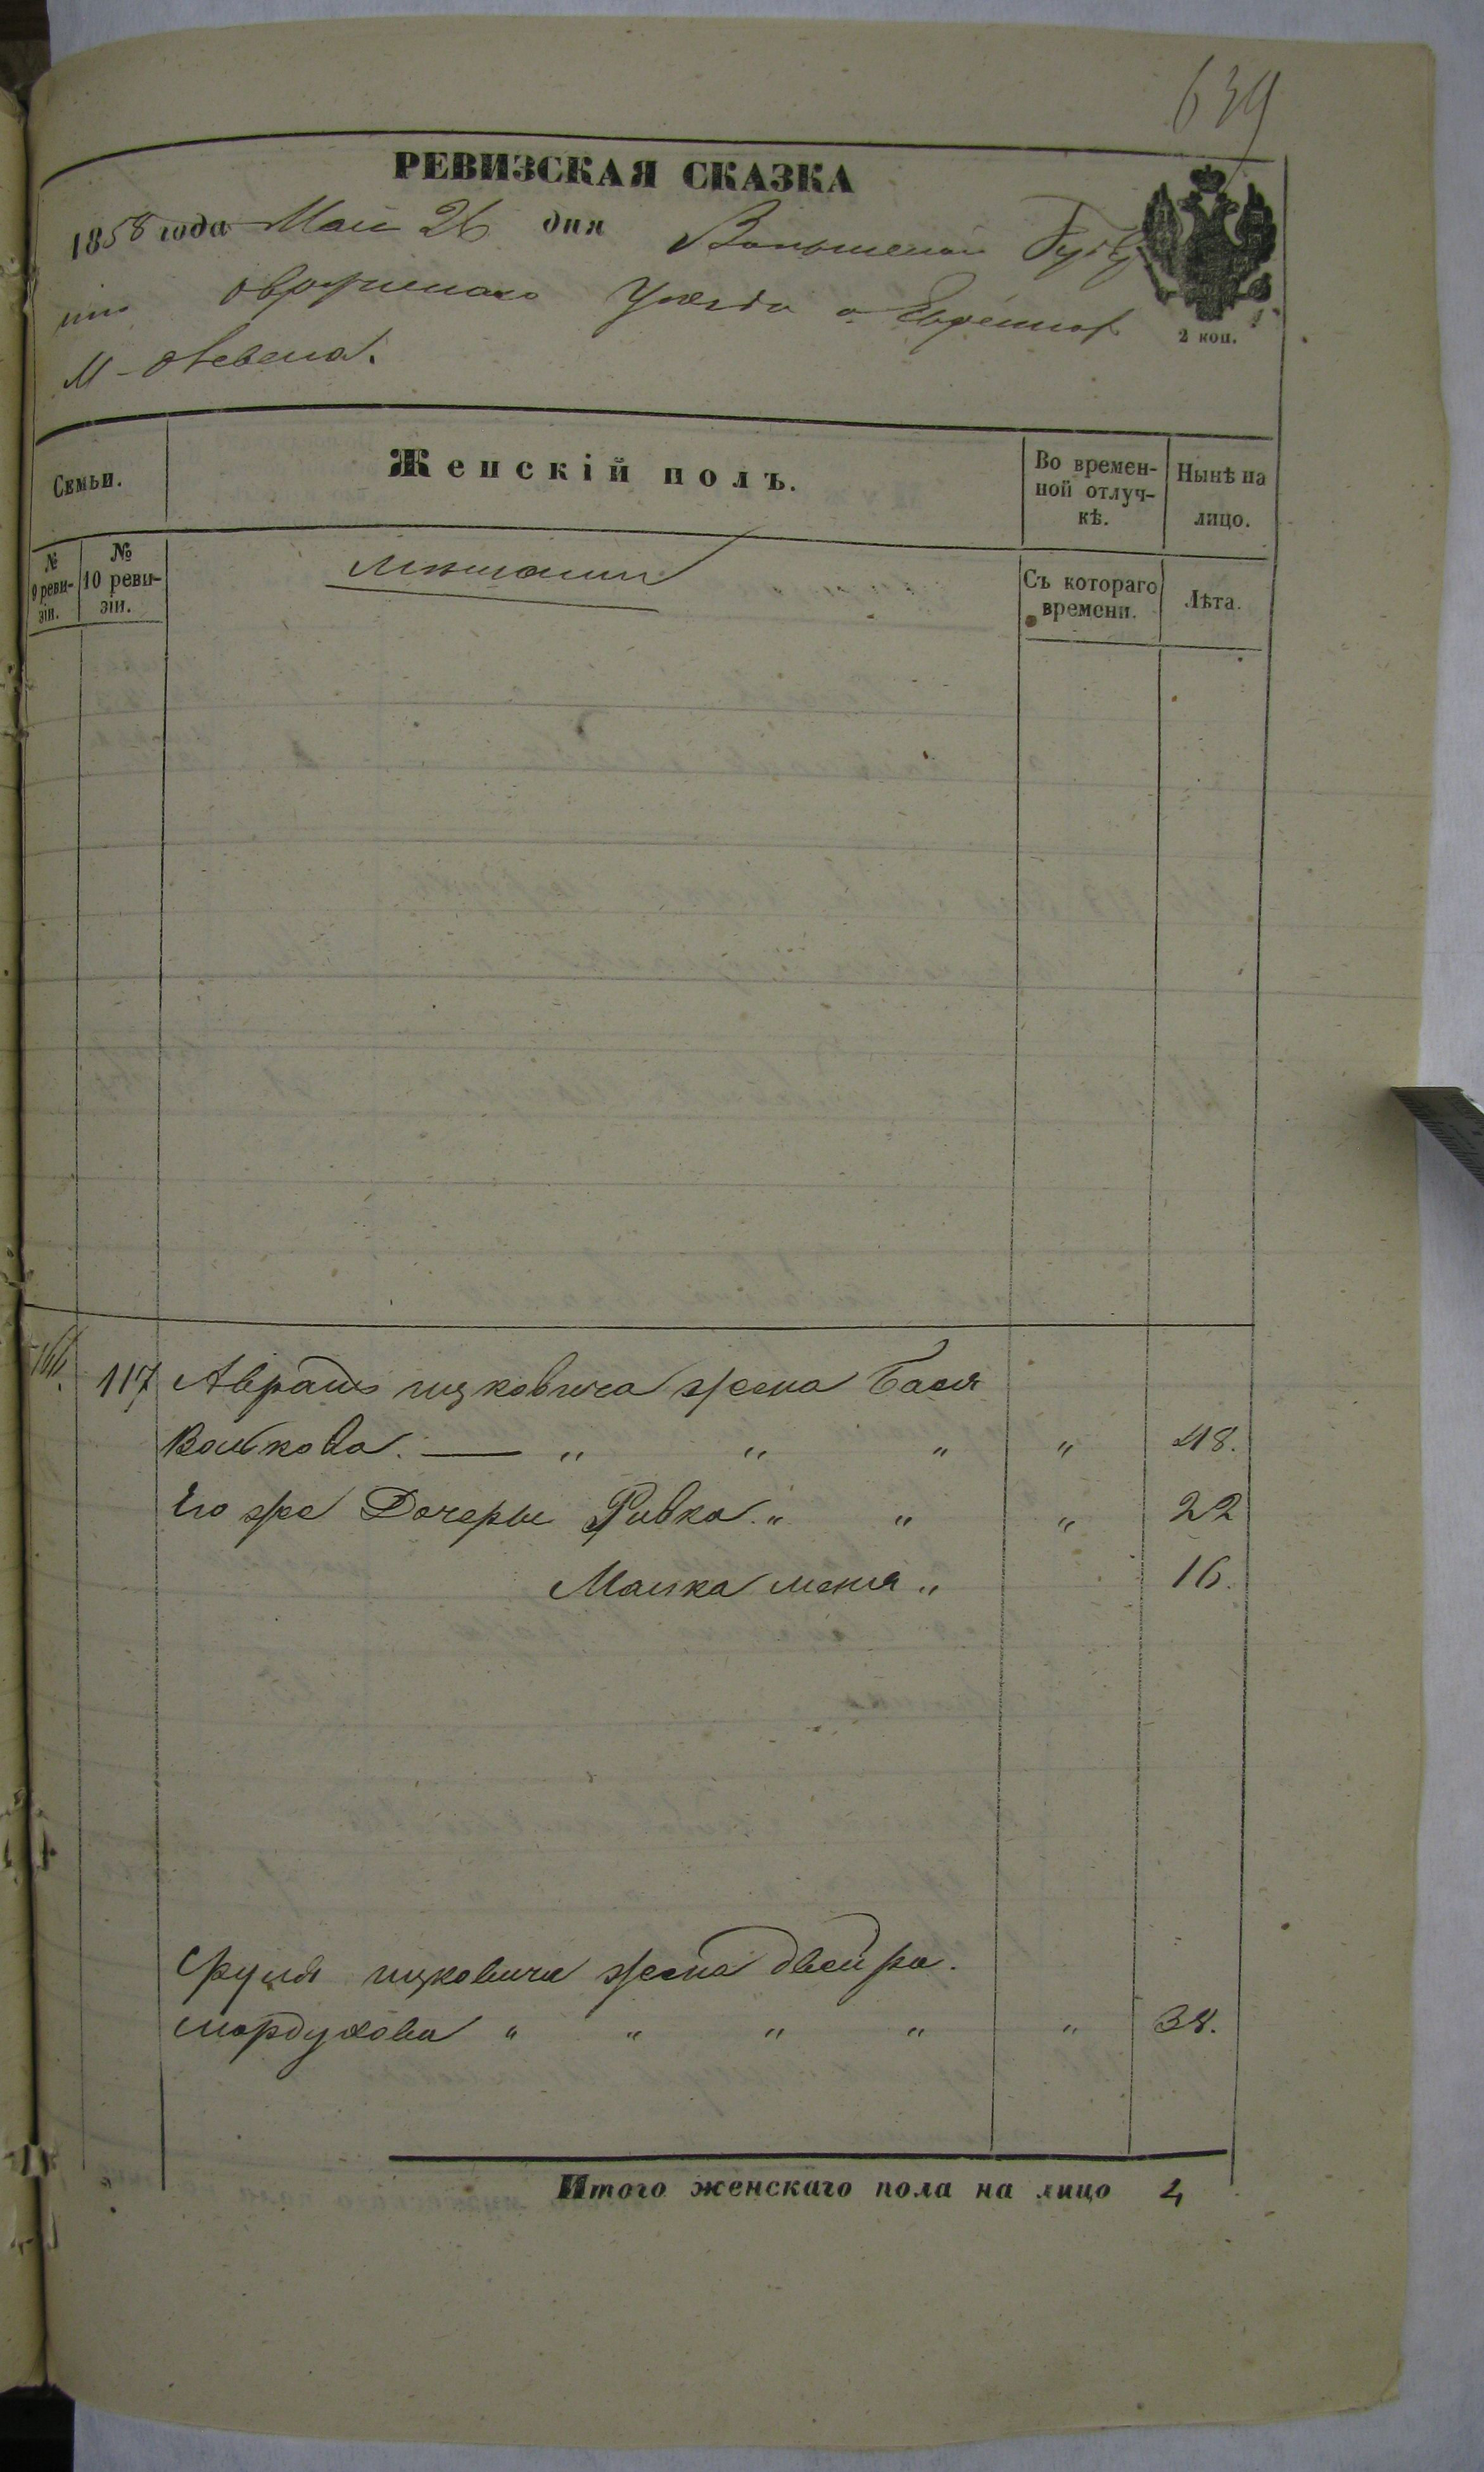 639
РЕВИЗСКАЯ СКАЗКА
1858 года Мая 26 дня Волынской Губер
нии Овручскаго Уѣзда о Евреяхъ
М-
2 коп.
Семьи.
Женскій полъ.
Во времен-
ной отлуч-
кѣ.
Нынѣ на
лицо.
№
9 реви-
зіи.
№
10 реви-
зіи.
Мѣщане
Съ котораго
времени.
Лѣта.
117 Аврама Ицковича жена Бася
Волькова. — " " " " 48.
Его же Дочеры Ривка " " " 22
Малка " 16.
Сруля Ицковича жена Двейра.
Мордухова " " " " " 38.
Итого женскаго пола на лицо 4